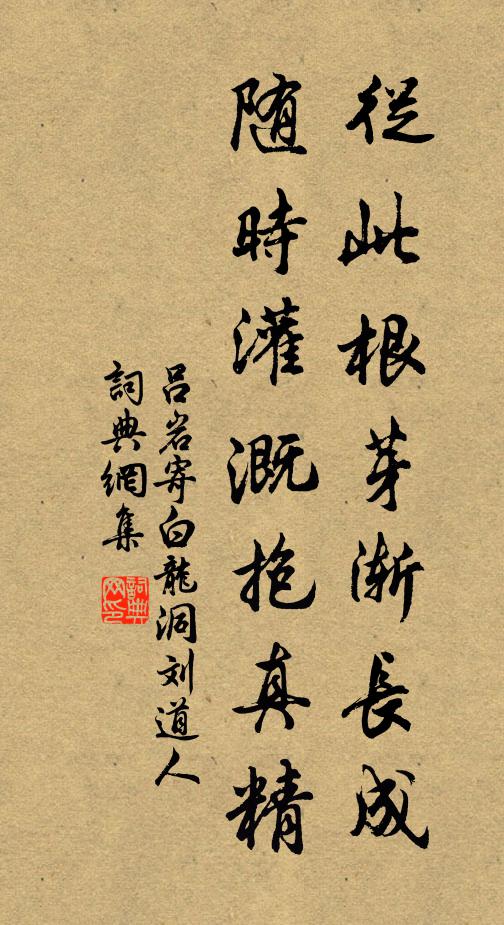 從此根芽漸長成
随時灌溉抱真精
吕岩寄白龍洞刘道人
詞典網集
詞典网印